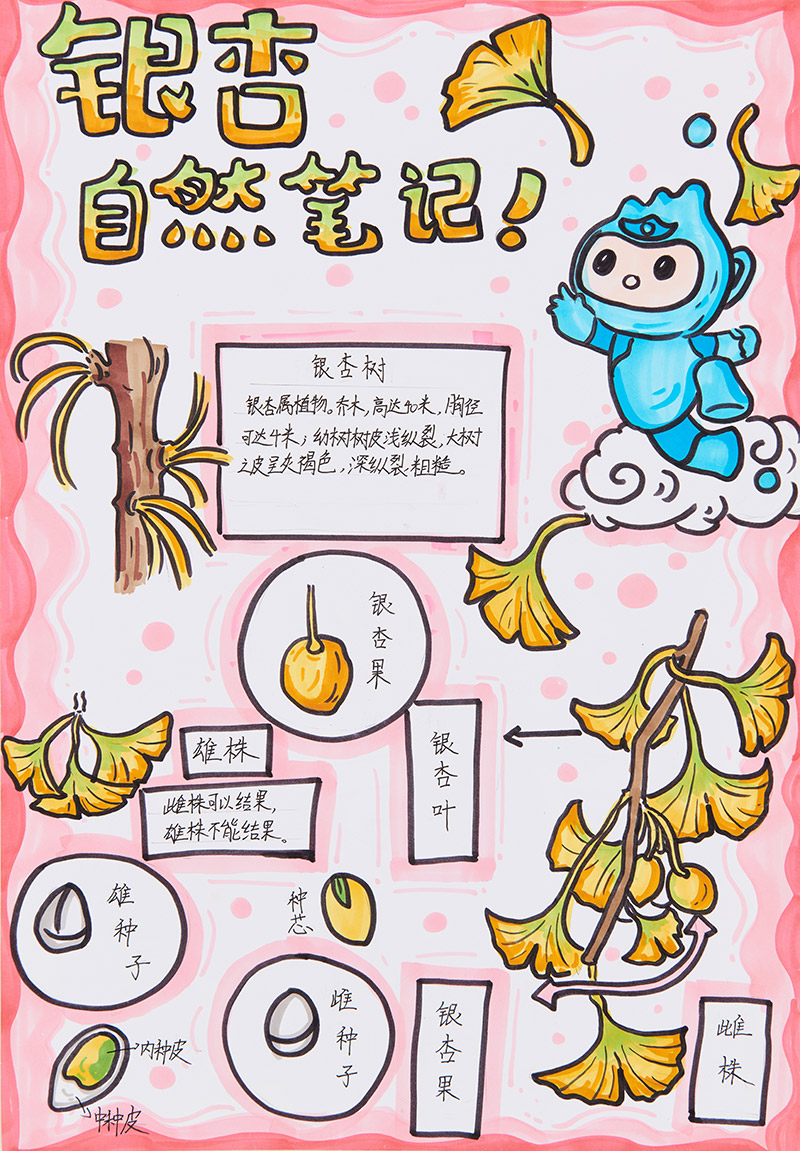 银杏
自然笔记!
银杏树
银杏属植物。乔木,高达40米,胸径
可达4米;幼树树皮浅纵裂,大树
之皮呈灰褐色,深纵裂粗糙。
银杏果
银杏叶
雄株
雌株可以结果,
雄株不能结果。
雄种子
种芯
雌种子
银杏果
雌株
内种皮
中种皮